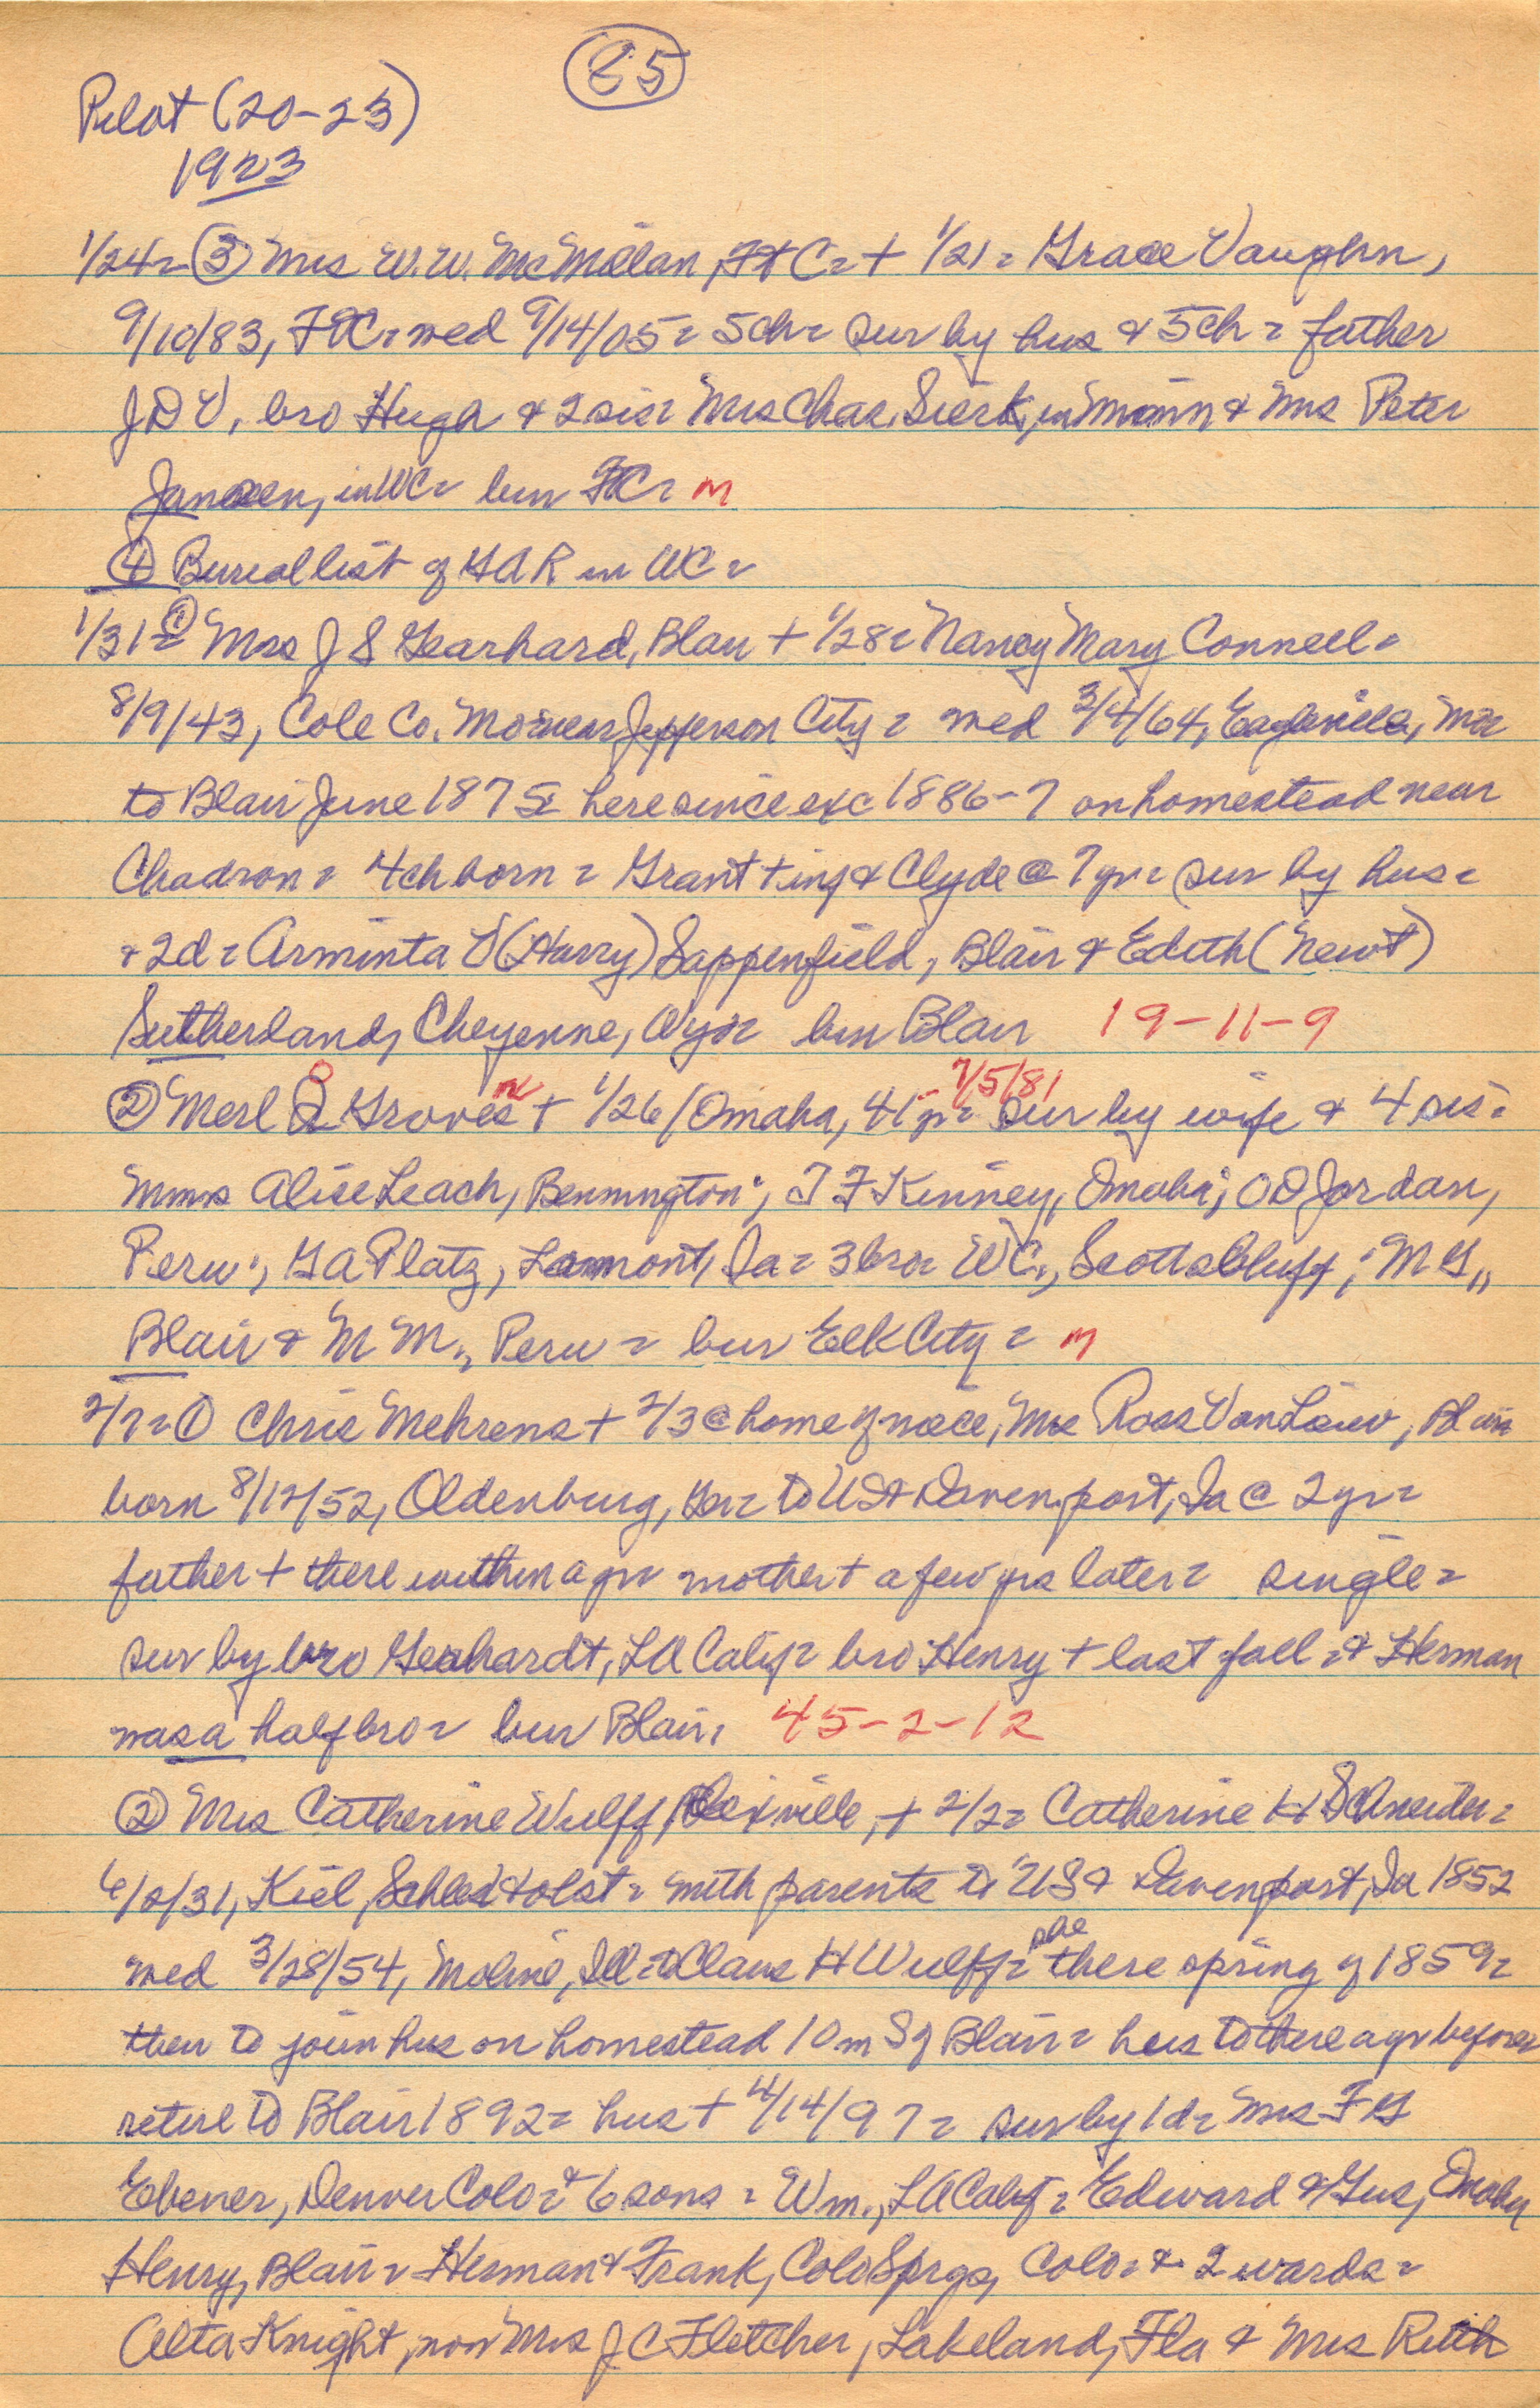 85
Pilot (20-23)
1923
1/24= ③ Mrs W.W. McMillan, Ft C= + 1/21= Grace Vaughn,
9/10/83, FtC= med 9/14/05= 5ch= sur by hus & 5ch= father
J D V, bro Hugh & 2 sis= Mrs Chas. Sierk, in Minn & Mrs Peter
Janssen, in WC= bur FtC= m
④ Burial list of GAR in WC=
1/31= ① Mrs J S Gearhard, Blair + 1/28= Nancy Mary Connell=
8/9/43, Cole Co. Mo near Jefferson City= med 3/4/64, Eagleville, Mo=
to Blair June 1875= here since exc 1886-7 on homestead near
Chadron= 4ch born= Grant + inf & Clyde @ 7yr= sur by hus=
& 2d= Arminta V (Harry) Sappenfield, Blair & Edith (Newt)
Sutherland, Cheyenne, Wyo= bur Blair 19-11-9
② Merl O Groves + 1/26/Omaha, 41yr= 7/5/81 sur by wife & 4 sis=
Mmes Alise Leach, Bennington; T F Kinney, Omaha; O D Jordan,
Peru; G A Platz, Lamont, Ia= 3 bro= WC., Scottsbluff; M G,,
Blair & M M., Peru= bur Elk City= m
2/7= ① Chris Mehrens + 2/3 @ home of niece, Mrs Ross Van Lieuw, Blair
born 8/12/52, Oldenburg, Ger= to US & Davenport, Ia @ 2yr=
father + there within a yr= mother + a few yrs later= single=
sur by bro Gerhardt, LA Calif= bro Henry + last fall= & Herman
was a half bro= bur Blair, 45-2-12
② Mrs Catherine Wulff, + 2/2= Catherine H Schneider=
6/2/31, Kiel, Schles Holst= with parents to US & Davenport, Ia 1852
med 3/28/54, Moline, Ill= to Claus H Wulff= she there spring of 1859=
then to join hus on homestead 10m S of Blair= hus to there a yr before=
retire to Blair 1892= hus + 4/14/97= sur by 1d= Mrs F G
Ebener, Denver Colo= & 6 sons= Wm., LA Calif= Edward & Gus, Omaha
Henry, Blair= Herman & Frank, Colo Sprgs, Colo= & 2 wards=
Alta Knight, now Mrs J C Fletcher, Lakeland, Fla & Mrs Ruth